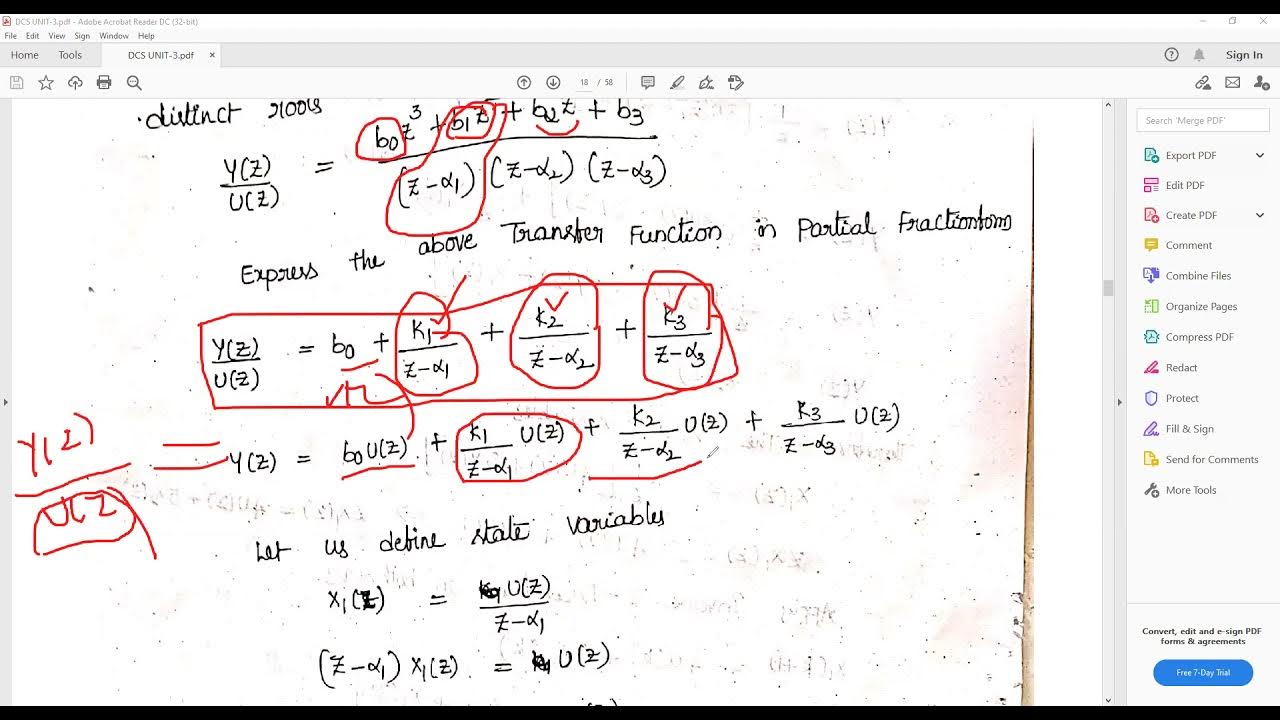 DCS UNIT-3.pdf - Adobe Acrobat Reader DC (32-bit)
File Edit View Sign Window Help
Home Tools DCS UNIT-3.pdf × ? Sign In
18 / 58
distinct roots
Y(Z)/U(Z) = (b0z³ + b1z² + b2z + b3) / ((z-α1)(z-α2)(z-α3))
Express the above Transfer Function in Partial Fraction form
Y(Z)/U(Z) = b0 + k1/(z-α1) + k2/(z-α2) + k3/(z-α3)
Y(Z)/U(Z) = Y(Z) = b0U(Z) + k1/(z-α1) U(Z) + k2/(z-α2) U(Z) + k3/(z-α3) U(Z)
Let us define state variables
X1(Z) = U(Z)/(z-α1)
(z-α1) X1(Z) = U(Z)
Search 'Merge PDF'
Export PDF
Edit PDF
Create PDF
Comment
Combine Files
Organize Pages
Compress PDF
Redact
Protect
Fill & Sign
Send for Comments
More Tools
Convert, edit and e-sign PDF
forms & agreements
Free 7-Day Trial